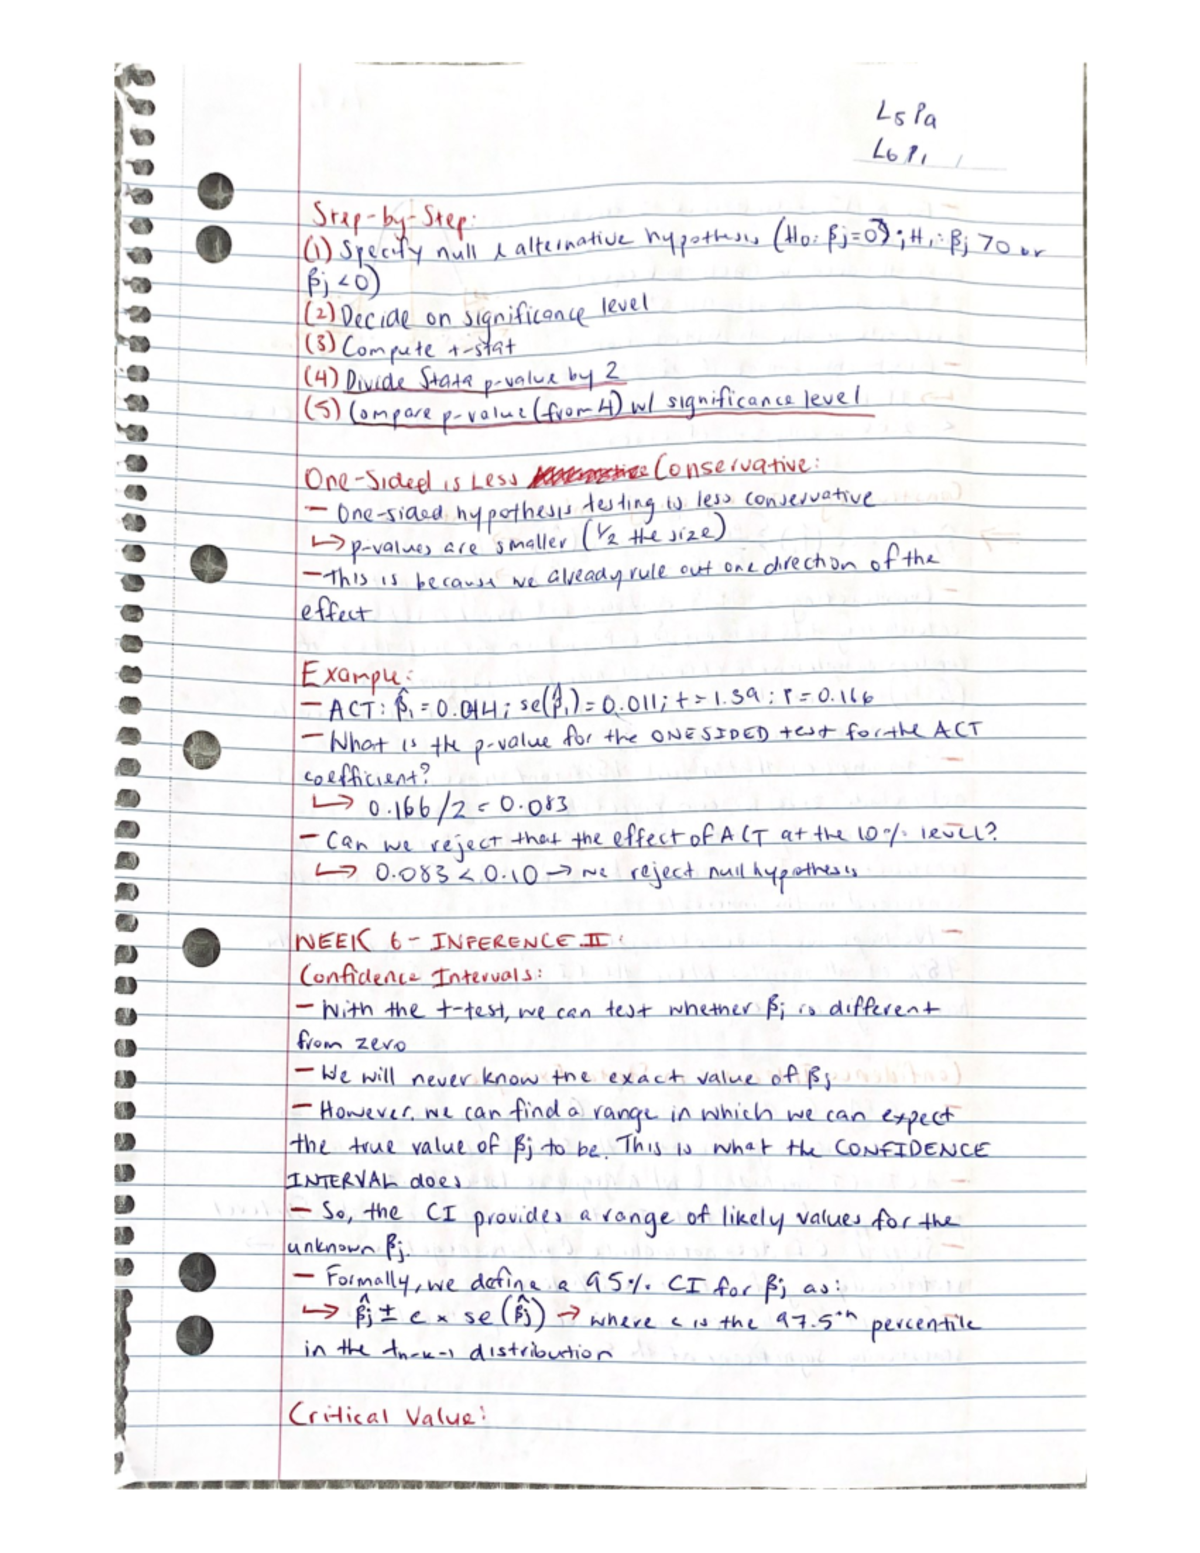 L5 Pa
L6 P1
Step-by-Step:
(1) Specify null & alternative hypothesis (H0: βj=0); H1: βj >0 or
βj <0)
(2) Decide on significance level
(3) Compute t-stat
(4) Divide Stata p-value by 2
(5) Compare p-value (from 4) w/ significance level
One-Sided is Less Conservative:
- One-sided hypothesis testing is less conservative
↳ p-values are smaller (1/2 the size)
- This is because we already rule out one direction of the
effect
Example:
- ACT: β̂1 = 0.014; se(β̂1) = 0.011; t = 1.39; P = 0.166
- What is the p-value for the ONESIDED test for the ACT
coefficient?
↳ 0.166/2 = 0.083
- Can we reject that the effect of ACT at the 10% level?
↳ 0.083 < 0.10 → we reject null hypothesis
WEEK 6 - INFERENCE II:
Confidence Intervals:
- With the t-test, we can test whether βj is different
from zero
- We will never know the exact value of βj
- However, we can find a range in which we can expect
the true value of βj to be. This is what the CONFIDENCE
INTERVAL does
- So, the CI provides a range of likely values for the
unknown βj.
- Formally, we define a 95% CI for βj as:
↳ β̂j ± c × se(β̂j) → where c is the 97.5th percentile
in the tn-k-1 distribution
Critical Value: